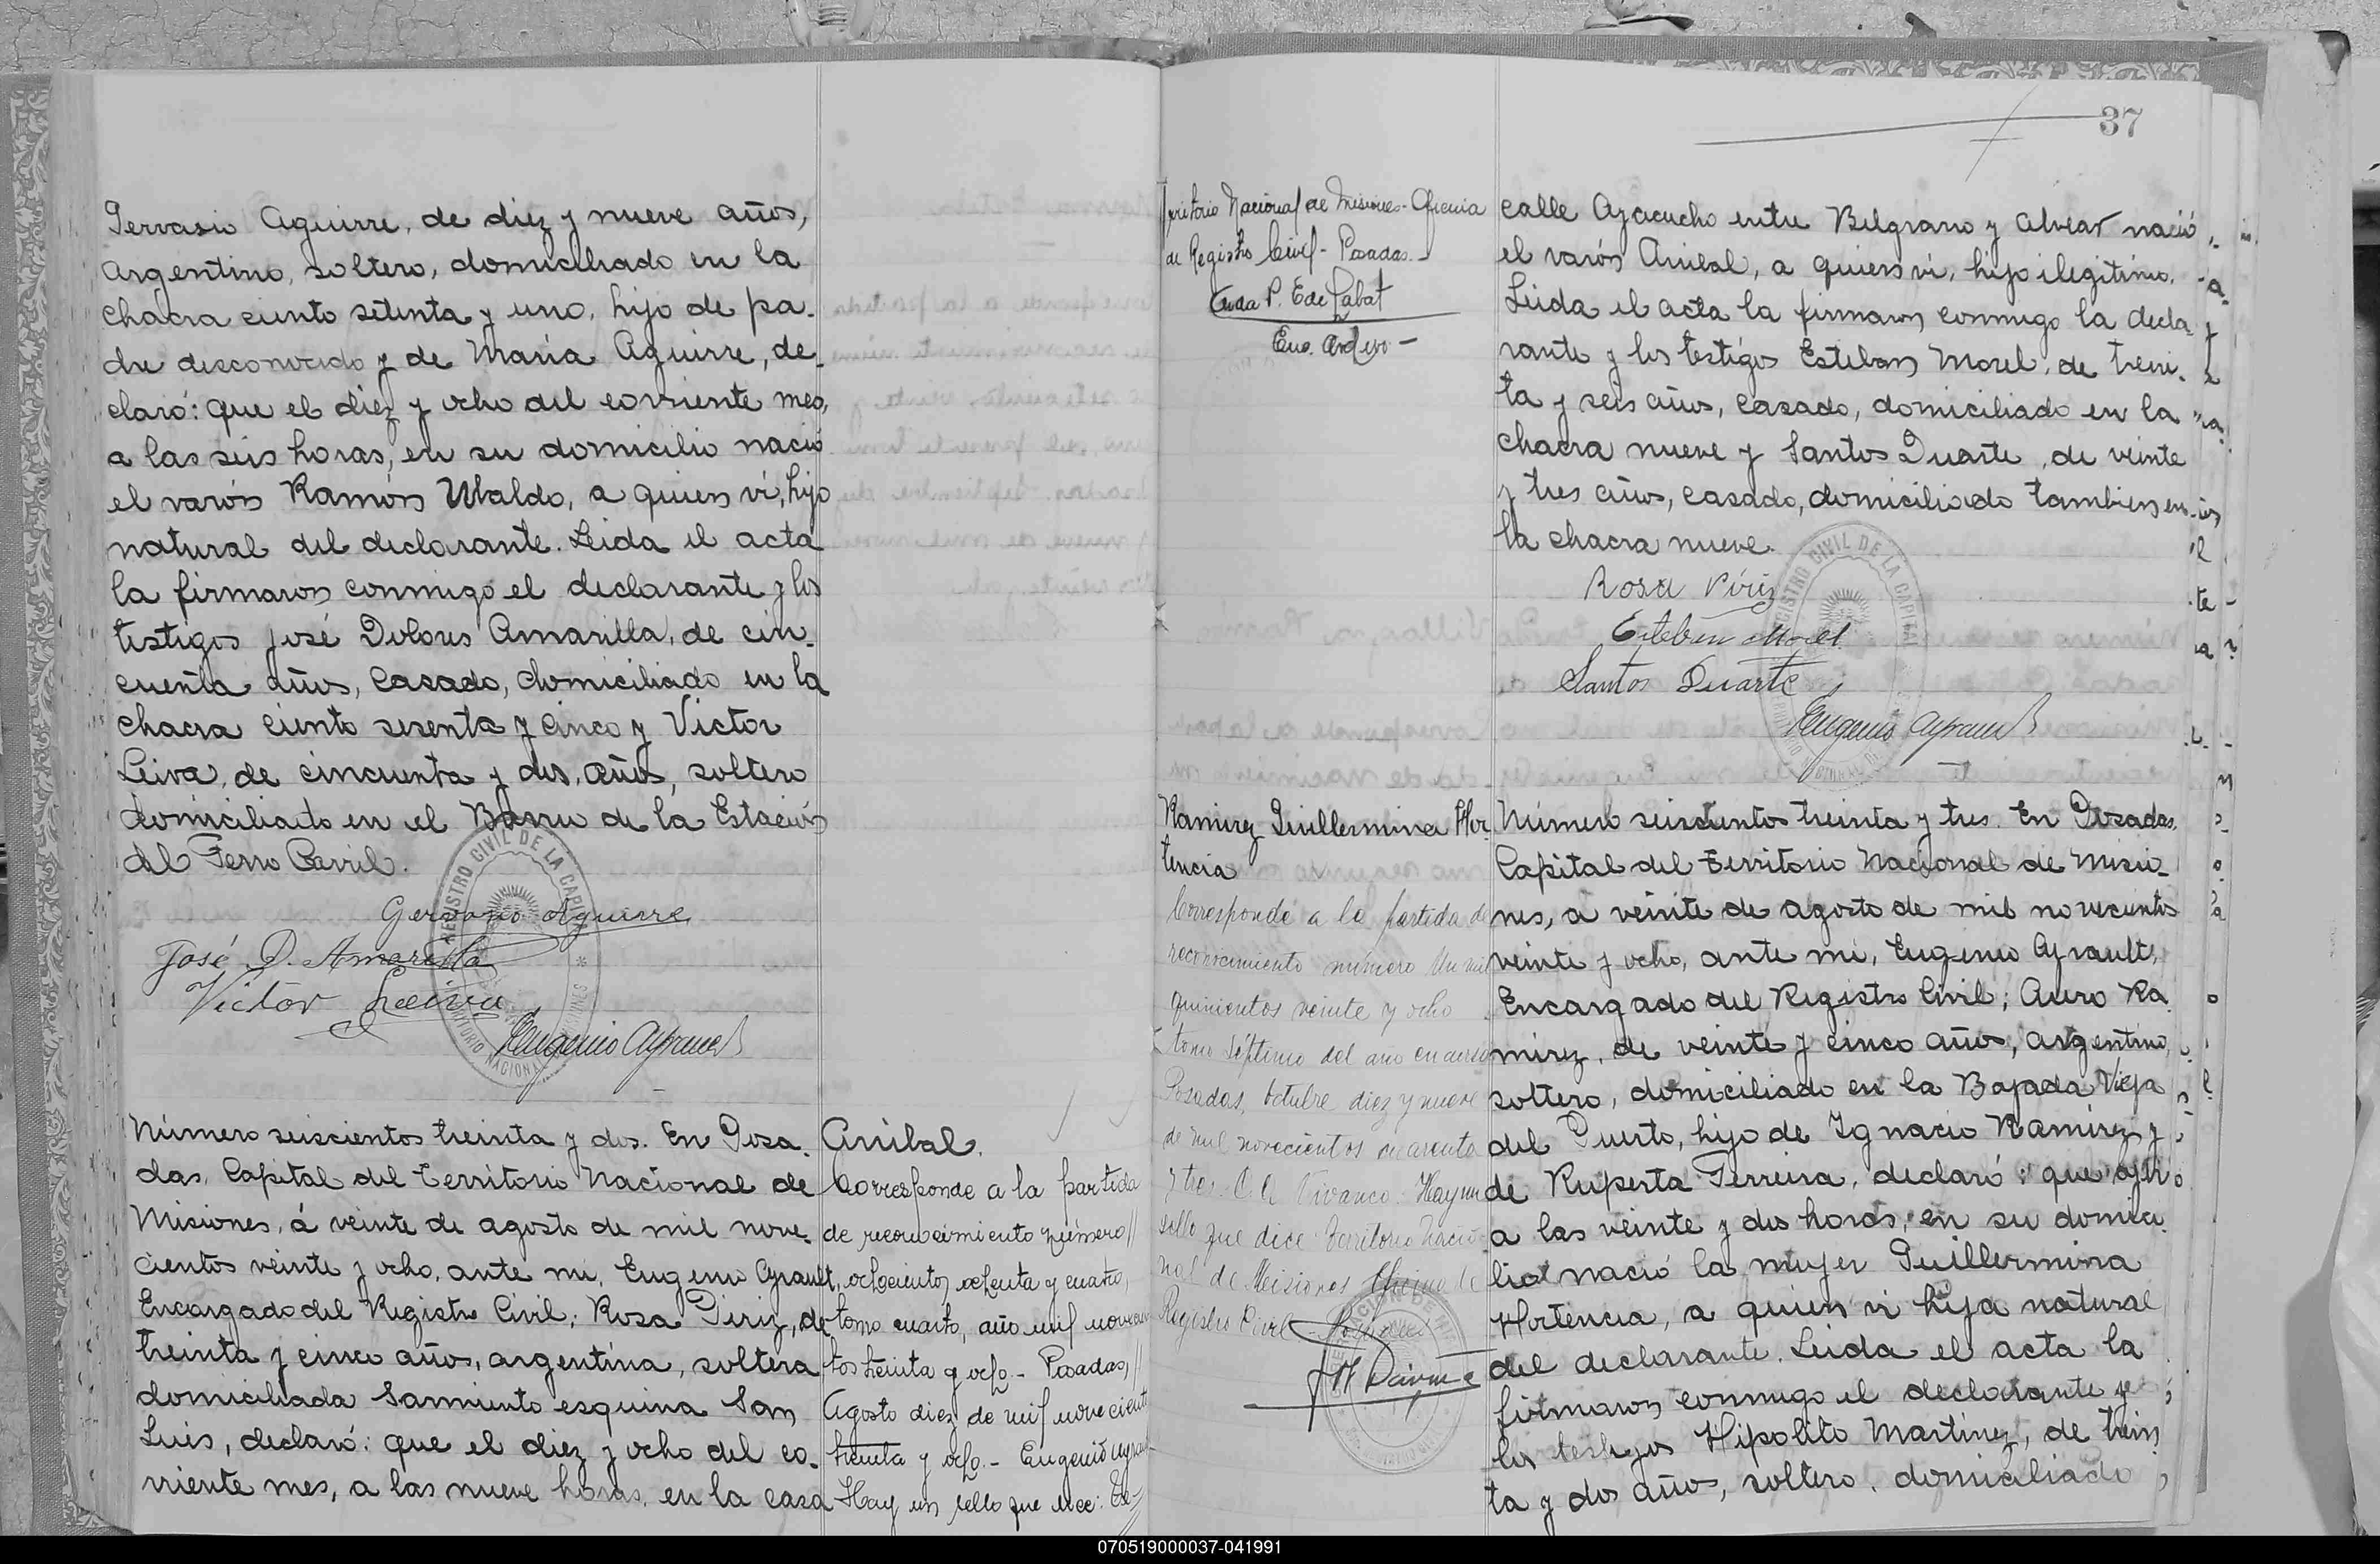 Gervasio Aguirre, de diez y nueve años,
argentino, soltero, domiciliado en la
chacra ciento setenta y uno, hijo de pa-
dre desconocido y de María Aguirre, de-
claró: que el diez y ocho del corriente mes,
a las seis horas, en su domicilio nació
el varón Ramón Ubaldo, a quien ví, hijo
natural del declarante. Leida el acta
la firmaron conmigo el declarante y los
testigos José Dolores Amarilla, de cin-
cuenta años, casado, domiciliado en la
chacra ciento sesenta y cinco y Victor
Leiva, de cincuenta y dos años, soltero
domiciliado en el Barrio de la Estación
del Ferro Carril.
Gervasio Aguirre
José D. Amarilla
Victor Leiva
Eugenio Ayrault
REGISTRO CIVIL DE LA CAPITAL
Número seiscientos treinta y dos. En Posa-
das, Capital del Territorio Nacional de
Misiones, á veinte de agosto de mil nove-
cientos veinte y ocho, ante mi, Eugenio Ayrault,
Encargado del Registro Civil; Rosa Piriz, de
treinta y cinco años, argentina, soltera
domiciliada Sarmiento esquina San
Luis, declaró: que el diez y ocho del co-
rriente mes, a las nueve horas, en la casa
Anibal.
Corresponde a la partida
de reconocimiento número//
ochocientos ochenta y cuatro,
tomo cuarto, año mil novecien
tos treinta y ocho.- Posadas,//
Agosto diez de mil novecientos
treinta y ocho.- Eugenio Ayrault
Hay un sello que dice: Te-//
37
rritorio Nacional de Misiones- Oficina
de Registro Civil- Posadas.-
Aida P. E de Labat
Enc. Archivo-
calle Ayacucho entre Belgrano y Alvear nació
el varón Anibal, a quien ví, hijo ilegítimo.
Leida el acta la firmaron conmigo la decla-
rante y los testigos Esteban Morel, de trein-
ta y seis años, casado, domiciliado en la
chacra nueve y Santos Duarte, de veinte
y tres años, casado, domiciliado tambien en
la chacra nueve.
Rosa Piriz
Esteban Morel
Santos Duarte
Eugenio Ayrault
REGISTRO CIVIL DE LA CAPITAL
Ramirez Guillermina Hor-
tencia
Corresponde a la partida de
reconocimiento número Un mil
quinientos veinte y ocho
tomo Séptimo del año en curso
Posadas, Octubre diez y nueve
de mil novecientos cuarenta
y tres. C. A. Vivanco. Hay un
sello que dice Territorio Nacio-
nal de Misiones Oficina de
Registro Civil Posadas
Número seiscientos treinta y tres. En Posadas,
Capital del Territorio Nacional de Misio-
nes, a veinte de agosto de mil novecientos
veinte y ocho, ante mi, Eugenio Ayrault,
Encargado del Registro Civil; Auro Ra-
mirez, de veinte y cinco años, argentino,
soltero, domiciliado en la Bajada Vieja
del Puerto, hijo de Ignacio Ramirez y
de Ruperta Ferreira, declaró: que ayer
a las veinte y dos horas, en su domici-
lio nació la mujer Guillermina
Hortencia, a quien ví hija natural
del declarante. Leida el acta la
firmaron conmigo el declarante y
los testigos Hipolito Martinez, de trein
ta y dos años, soltero, domiciliado
070519000037-041991